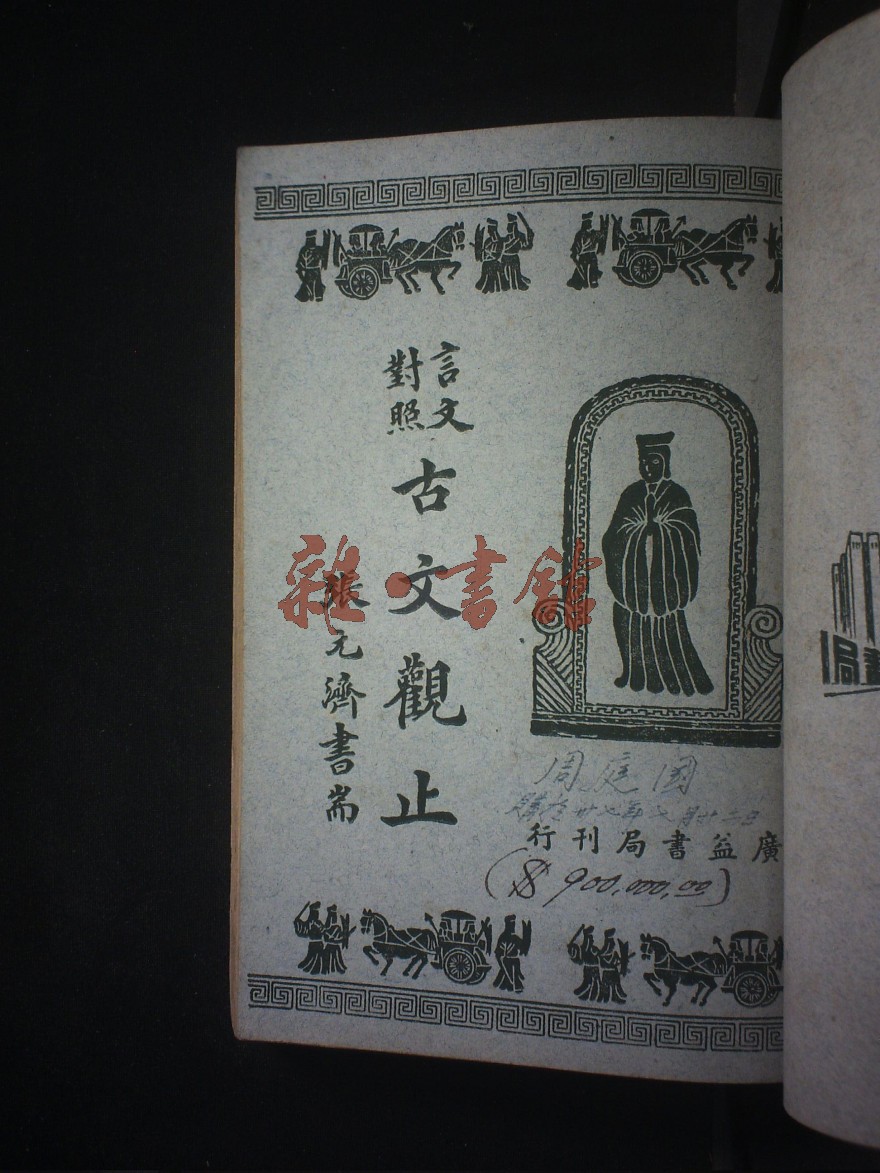 言文
對照
古文觀止
張元濟書耑
雜·書館
周庭園
購於廿七年七月廿二日
廣益書局刊行
($900,000.00)
書局